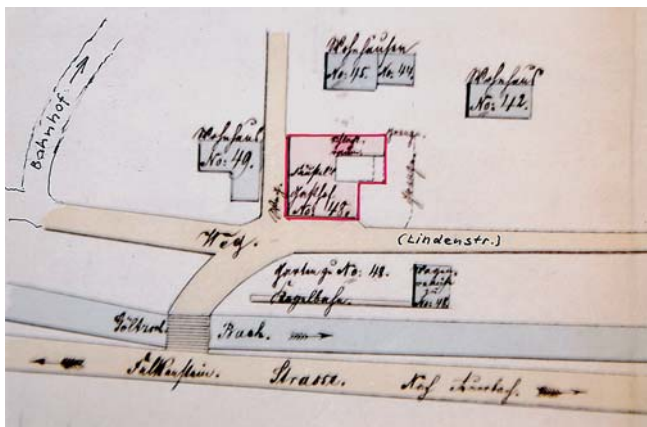 Bahnhof
Wohnhausen
No: 45. No: 44.
Wohnhaus
No: 42.
Wohnhaus
No: 49.
Gasthof
No: 48.
Weg.
(Lindenstr.)
Garten zu No: 48.
Kegelbahn.
Wagen-
zu
No: 48.
Göltzsch. Bach.
Falkenstein. Strasse. Nach Auerbach.